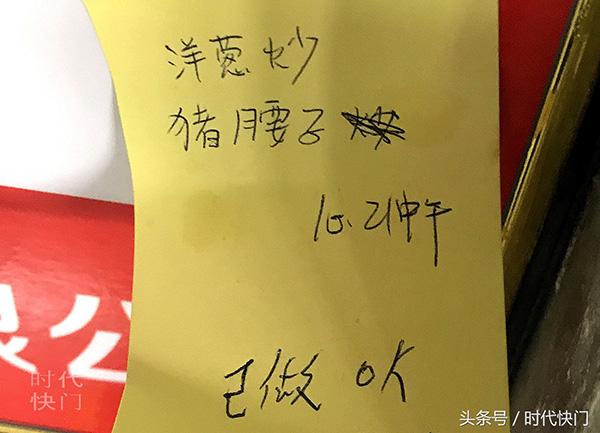 洋葱炒
猪腰子
10.21中午
已做 OK
限公
时代
快门
头条号 / 时代快门